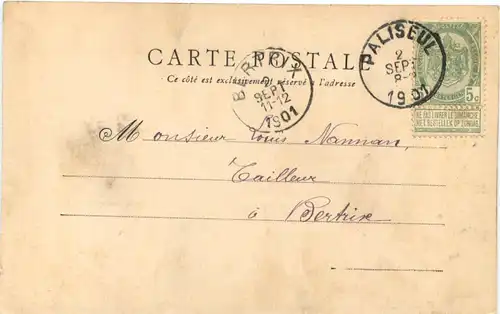 CARTE POSTALE
Ce côté est exclusivement réservé à l'adresse
BERTRIX
2
SEPT
11-12
1901
PALISEUL
2
SEPT
8-9
1901
5c
NE PAS LIVRER LE DIMANCHE
NIET BESTELLEN OP ZONDAG
Monsieur Louis Nannan,
Tailleur
à Bertrix